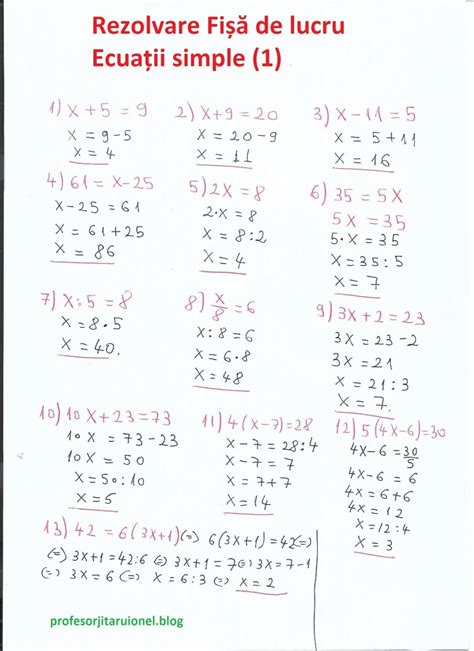 Rezolvare Fișă de lucru
Ecuații simple (1)
1) x + 5 = 9
x = 9-5
x = 4
2) x+9 = 20
x = 20-9
x = 11
3) x-11 = 5
x = 5+11
x = 16
4) 61 = x-25
x-25 = 61
x = 61+25
x = 86
5) 2x = 8
2·x = 8
x = 8:2
x = 4
6) 35 = 5x
5x = 35
5·x = 35
x = 35:5
x = 7
7) x:5 = 8
x = 8·5
x = 40.
8) x/8 = 6
x:8 = 6
x = 6·8
x = 48
9) 3x+2 = 23
3x = 23-2
3x = 21
x = 21:3
x = 7.
10) 10x+23=73
10x = 73-23
10x = 50
x = 50:10
x = 5
11) 4(x-7)=28
x-7 = 28:4
x-7 = 7
x = 7+7
x = 14
12) 5(4x-6)=30
4x-6 = 30/5
4x-6 = 6
4x = 6+6
4x = 12
x = 12:4
x = 3
13) 42 = 6(3x+1) (=) 6(3x+1) = 42 (=)
(=) 3x+1 = 42:6 (=) 3x+1 = 7 (=) 3x = 7-1
(=) 3x = 6 (=) x = 6:3 (=) x = 2
profesorjitaruionel.blog